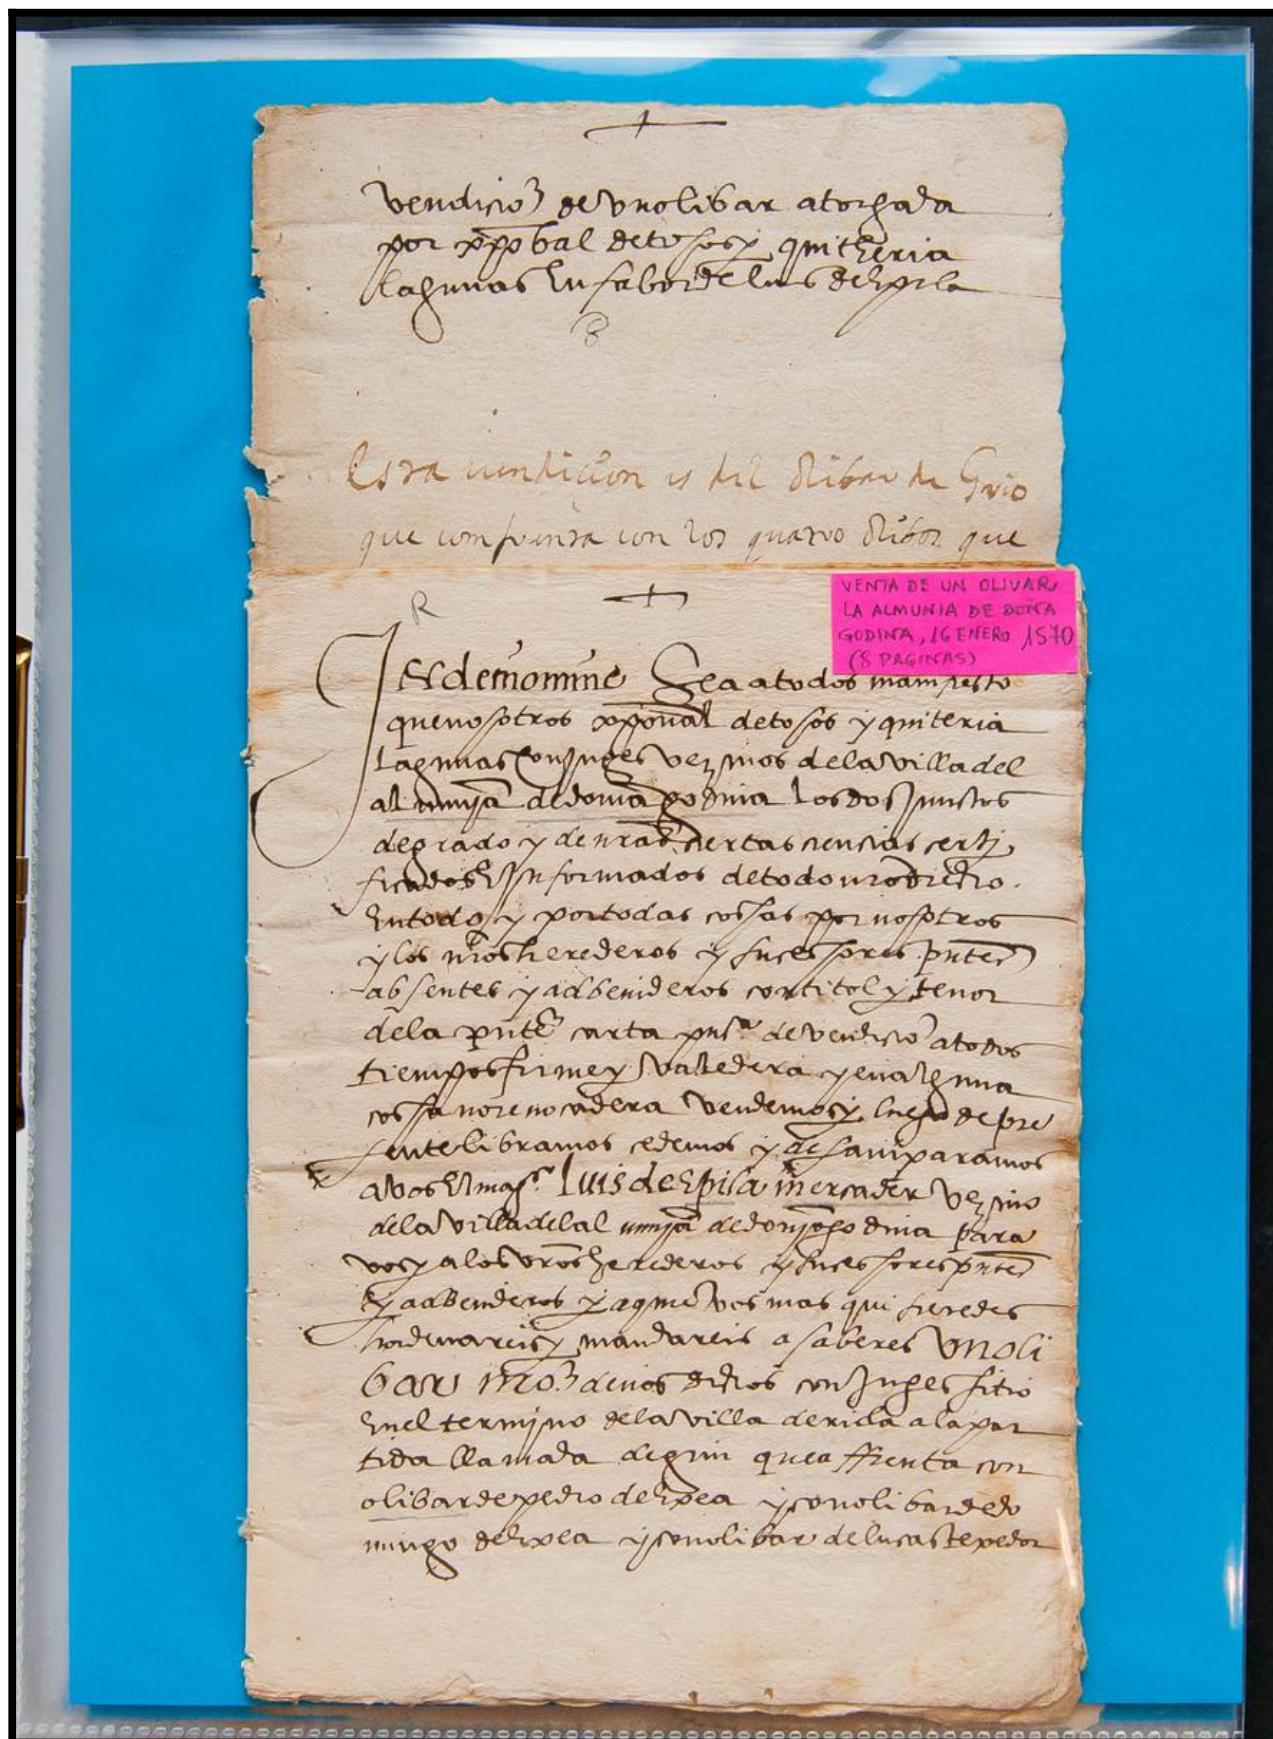 +
vendicio͂ de vn olibar atorgada
por xp͂obal de tosos y quitheria
lagunas En fabor de luis de Epila
Esta vendicion es del olibar de Grio
que confrenta con los quatro olibos que
R
+
VENTA DE UN OLIVAR,
LA ALMUNIA DE DOÑA
GODINA, 16 ENERO 1570
(8 PAGINAS)
IN dei nomine Sea a todos manifiesto
que nosotros xp͂oual de tosos y quiteria
lagunas Conjuges vezinos de la villa del
almunja de dona godina los dos Junctos
de grado y de nr͂as ciertas ciencias certi
ficados E Informados de todo nr͂o dr͂echo
En todo y por todas cossas por nosotros
y los nr͂os herederos y sucessores pn͂tes
absentes y adbenideros con titol y tenor
de la pn͂te carta pu͂ca de vendicio͂ a todos
tiempos firme y Valledera y en alguna
cossa no reuocadera Vendemos y luego de pre
sente libramos cedemos y desamparamos
a vos El mag.co Luis de Epila mercader Vezino
de la Villa del almunja de donya godina para
vos y a los vr͂os herederos y sucessores pn͂tes
y adbenideros y a qui vos mas querredes
hordenareis y mandareis a saber es Vn oli
bar nr͂o de nos dichos conjuges sitio
En el termino de la Villa de ricla a la par
tida llamada de griu que affrenta con
olibar de pedro de Exea y con olibar de do
mingo de Exea y con olibar de lucas texedor